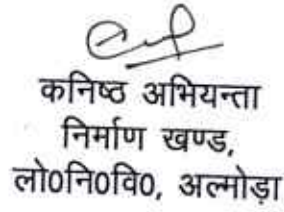 कनिष्ठ अभियन्ता
निर्माण खण्ड,
लो०नि०वि०, अल्मोड़ा